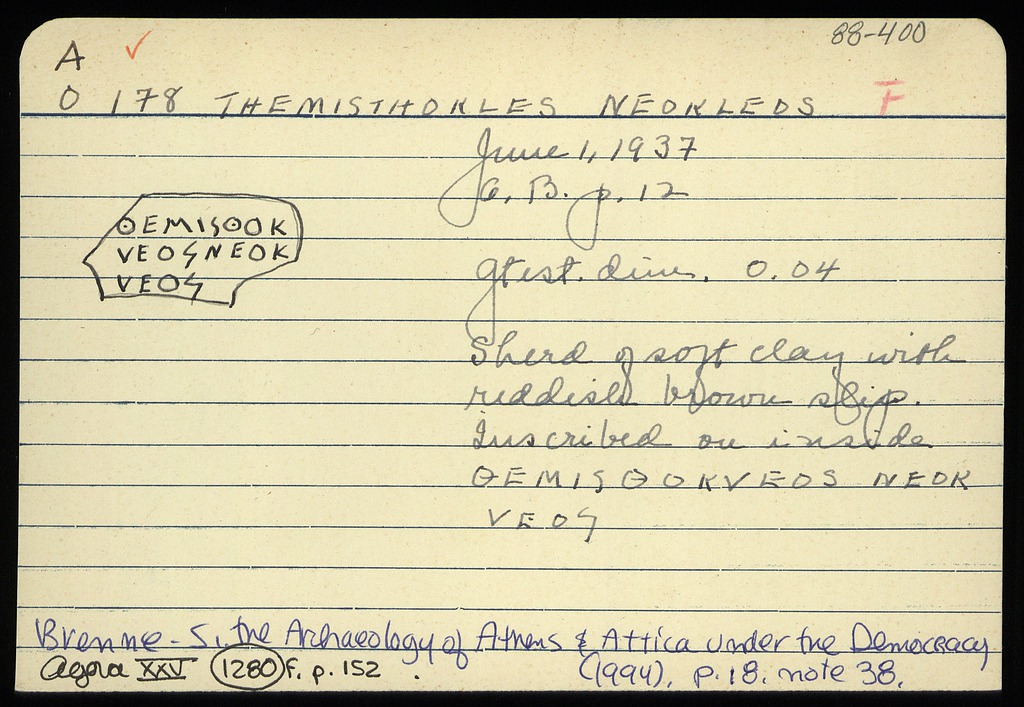 88-400
A ✓
O 178 THEMISTHOKLES NEOKLEOS F
June 1, 1937
p. 12
ΘEMISΘOK
VEOSNEOK
VEOS
gtest. dim. 0.04
Sherd of soft clay with
reddish brown slip.
Inscribed on inside
ΘEMISΘOKVEOS NEOK
VEOS
Brenne - S, the Archaeology of Athens & Attica under the Democracy
(1994), p.18. note 38.
Agora XXV 1280 f. p. 152.